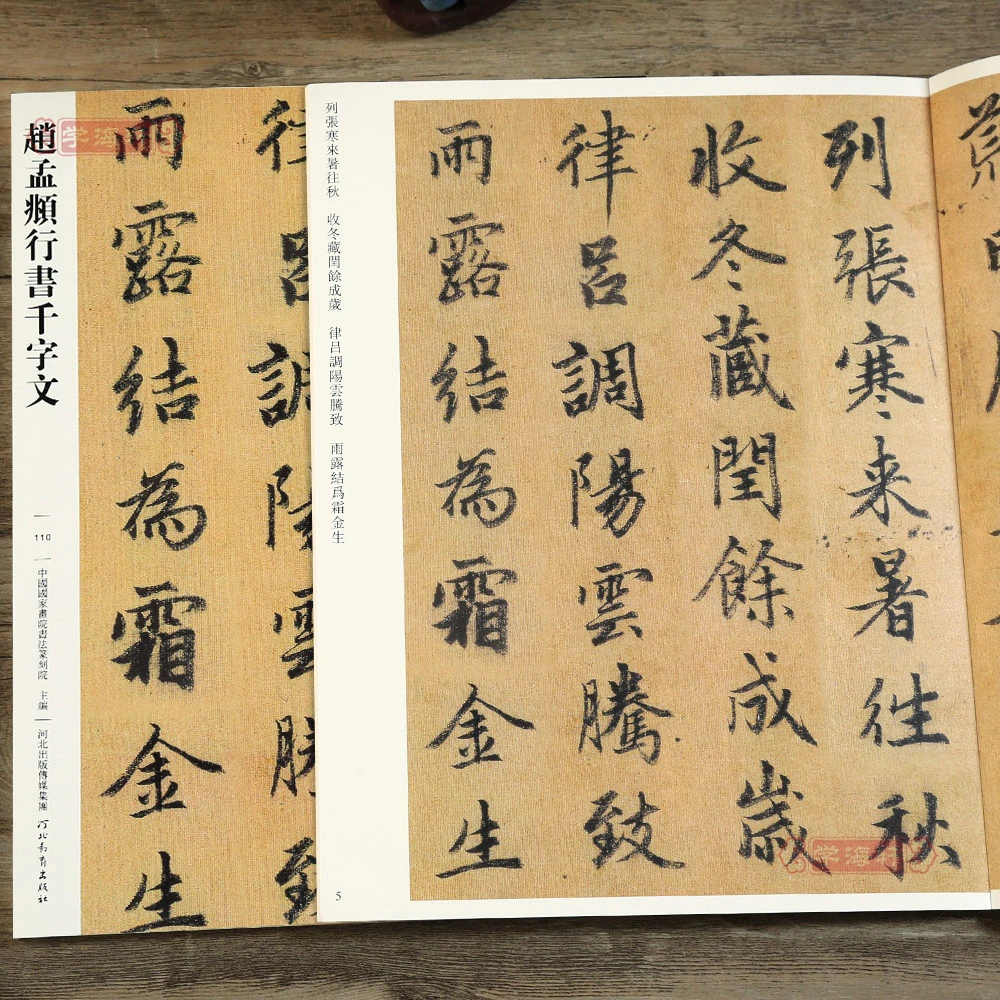 趙孟頫行書千字文
110
中國國家畫院書法篆刻院 主編
河北出版傳媒集團
河北教育出版社
律呂調陽雲騰致
雨露結為霜金生
列張寒來暑往秋 收冬藏閏餘成歲 律呂調陽雲騰致 雨露結爲霜金生
5
列張寒来暑往秋
收冬藏閏餘成歲
律呂調陽雲騰致
雨露結為霜金生
学海
学海